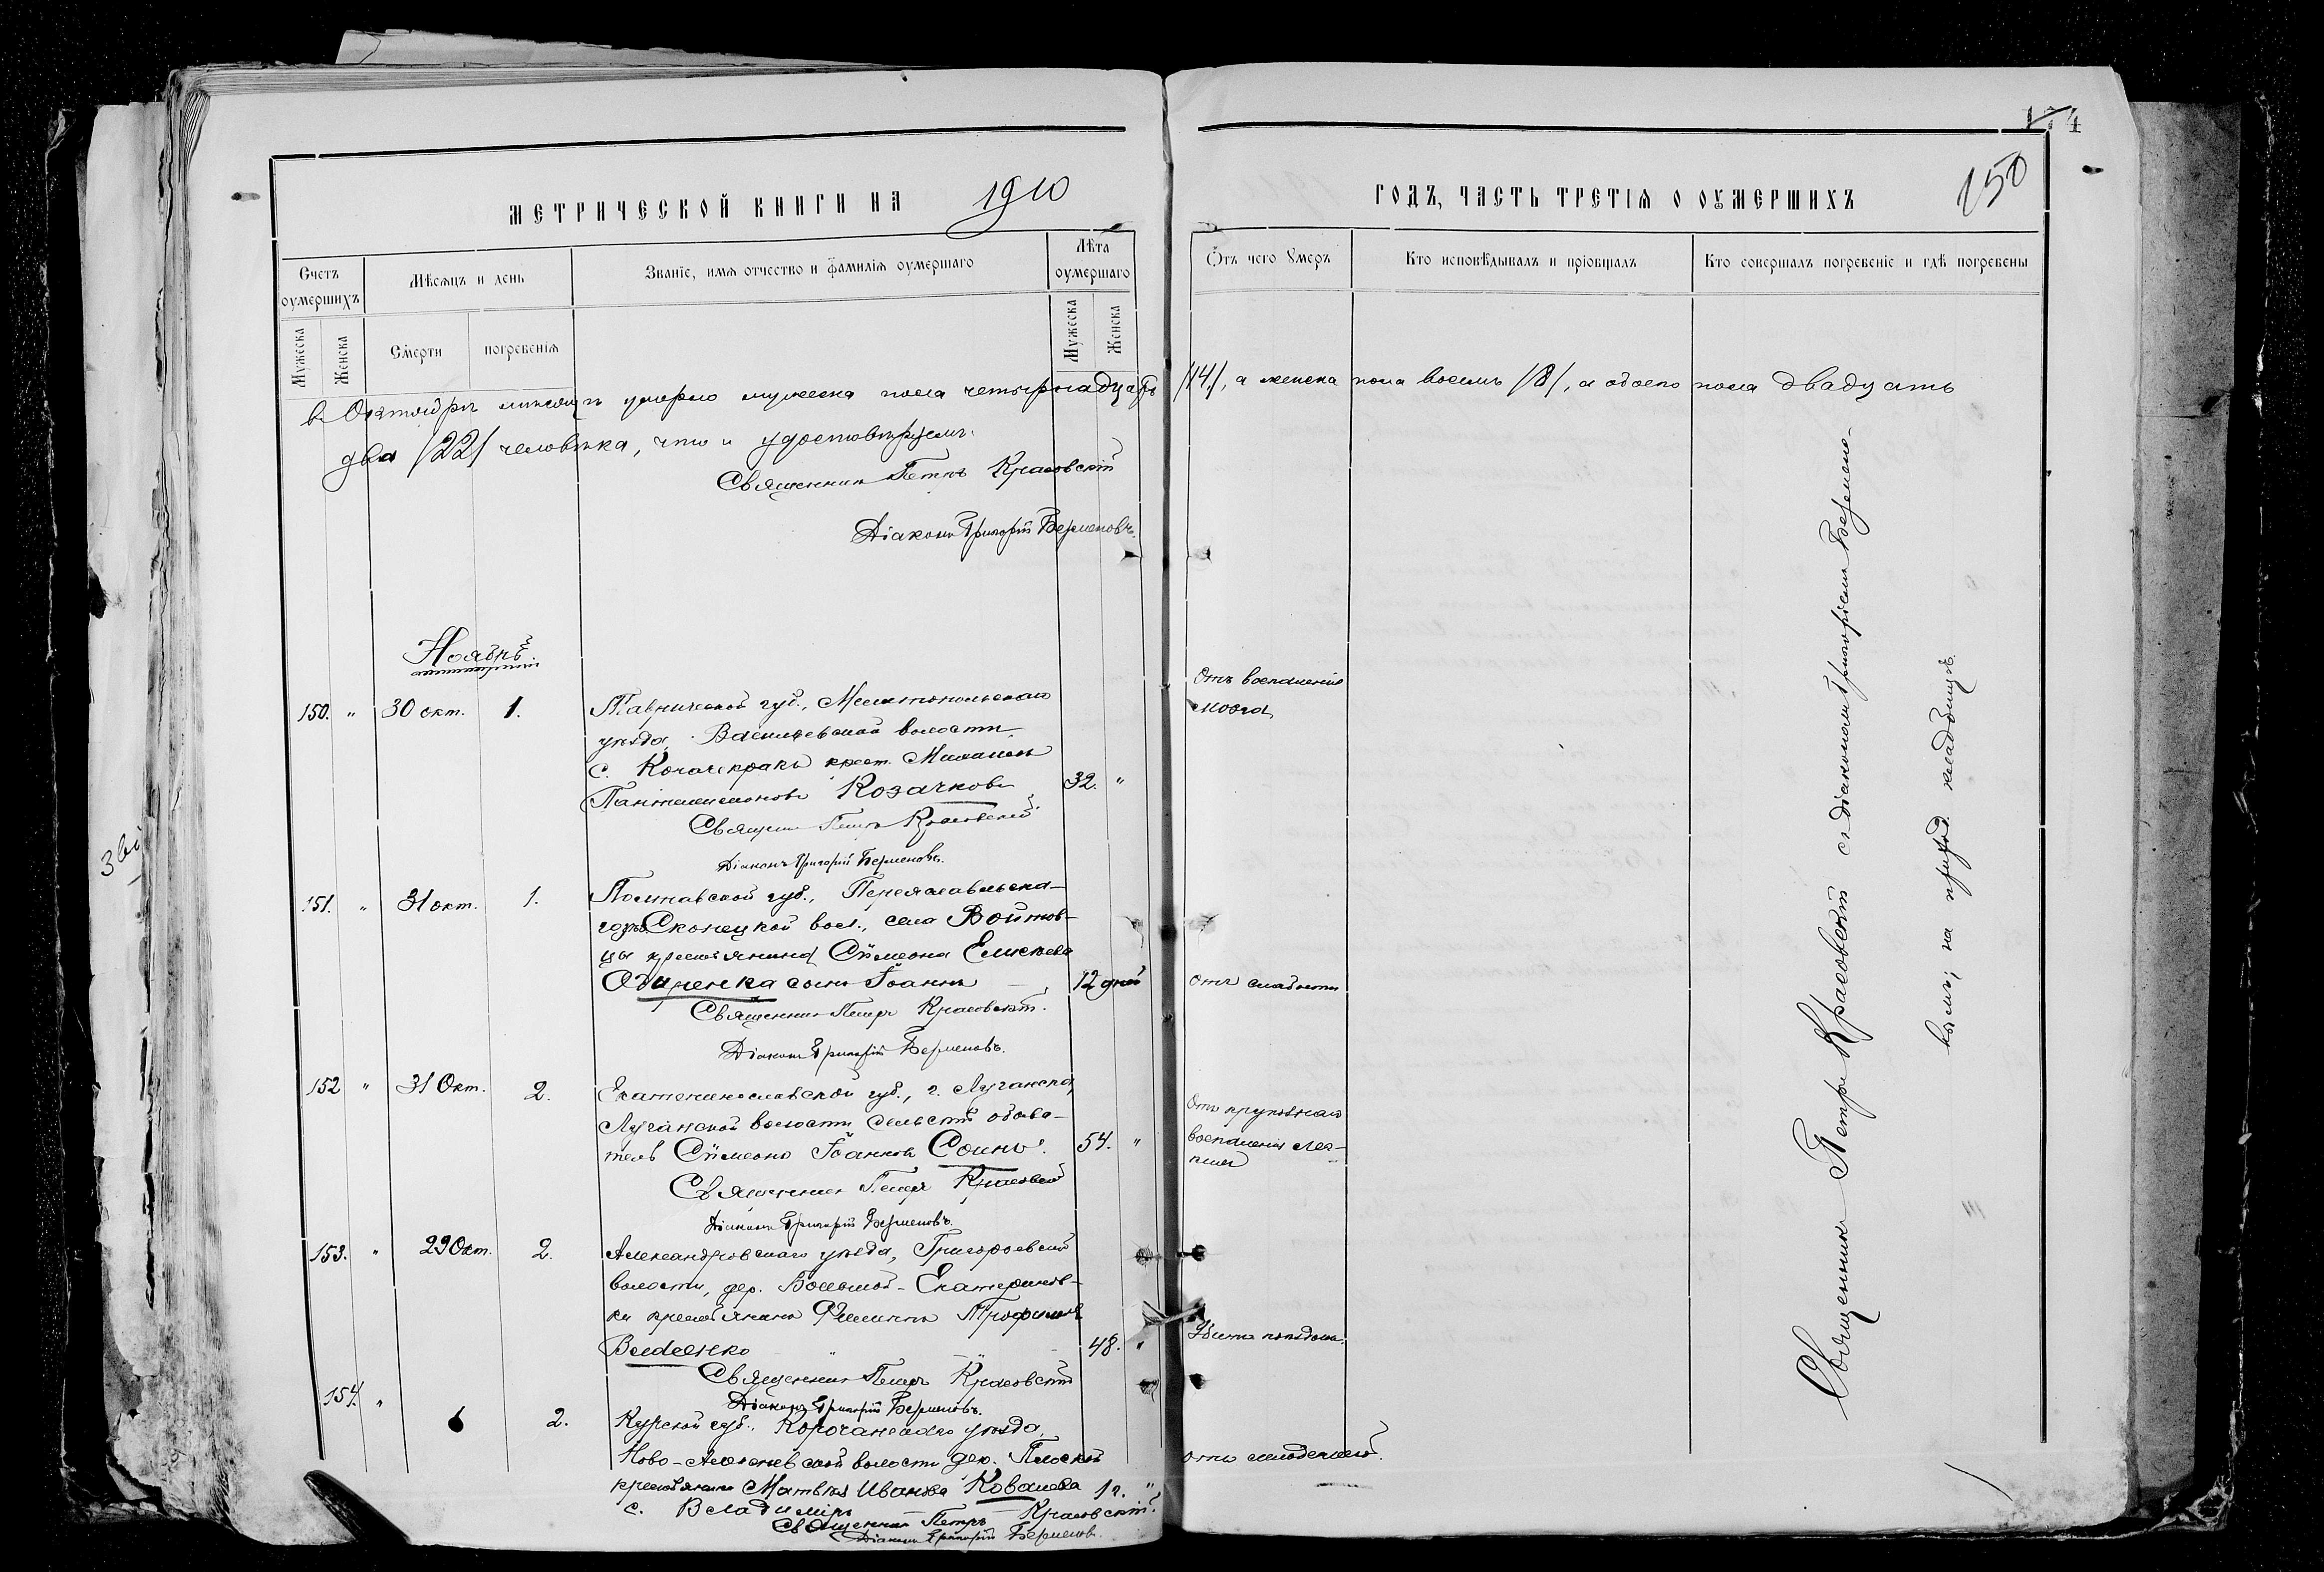 174
МЕТРИЧЕСКОЙ КНИГИ НА 1910
ГОДЪ, ЧАСТЬ ТРЕТІЯ О ОУМЕРШИХЪ 150
Счетъ оумершихъ
Мѣсяцъ и день
Званіе, имя отчество и фамилія оумершаго
Лѣта оумершаго
Отъ чего Умеръ
Кто исповѣдывалъ и пріобщалъ
Кто совершалъ погребеніе и гдѣ погребены
Мужеска
Женска
Смерти
погребенія
Мужеска
Женска
в Октябрѣ мѣсяцѣ умерло мужеска пола четырнадцать /14/, а женска пола восемь /8/, а обоего пола двадцать
два /22/ человѣка, что и удостовѣряемъ.
Священникъ Петръ Красовскій
Діаконъ Григорій Берменовъ.
Ноябрь
150. " 30 окт. 1.
Таврической губ., Мелитопольскаго
уѣзда, Васильевской волости
с. крест. Михаилъ
Пантелеимоновъ Козачковъ 32. "
Отъ воспаленія
мозга
Священ. Петръ Красовскій
Діаконъ Григорій Берменовъ.
151. " 31 окт. 1.
Полтавской губ., Переяславльска-
го у. вол., села Войтов-
цы крестьянина Сѵмеона Елисѣева
Одаренка сынъ Іоаннъ 12 дней
Отъ слабости
Священникъ Петръ Красовскій.
Діаконъ Григорій Берменовъ.
152 " 31 Окт. 2.
Екатеринославской губ., г. Луганска,
Луганской волости сельскій обыва-
тель Сѵмеонъ Іоанновъ Соинъ. 54. "
Отъ крупознаго
воспаленія лег-
кихъ
Священникъ Петръ Красовскій
Діаконъ Григорій Берменовъ.
153. " 29 Окт. 2.
Александровскаго уѣзда, Григорьевской
волости, дер. Большой-Екатеринов-
ки крестьянинъ Филиппъ Трофимовъ
48. "
Убитъ поѣздомъ.
Священникъ Петръ Красовскій
Діаконъ Григорій Берменовъ.
154. " 2.
Курской губ., Корочанскаго уѣзда,
Ново- волости дер. Плоской
крестьянина Матвѣя Иванова Ковалева 1 г. "
с. Владиміръ
отъ младенческой.
Священникъ Петръ Красовскій.
Діаконъ Григорій Берменовъ.
Священникъ Петръ Красовскій съ діакономъ Григоріемъ Бермено-
вымъ, на приход. кладбищѣ.